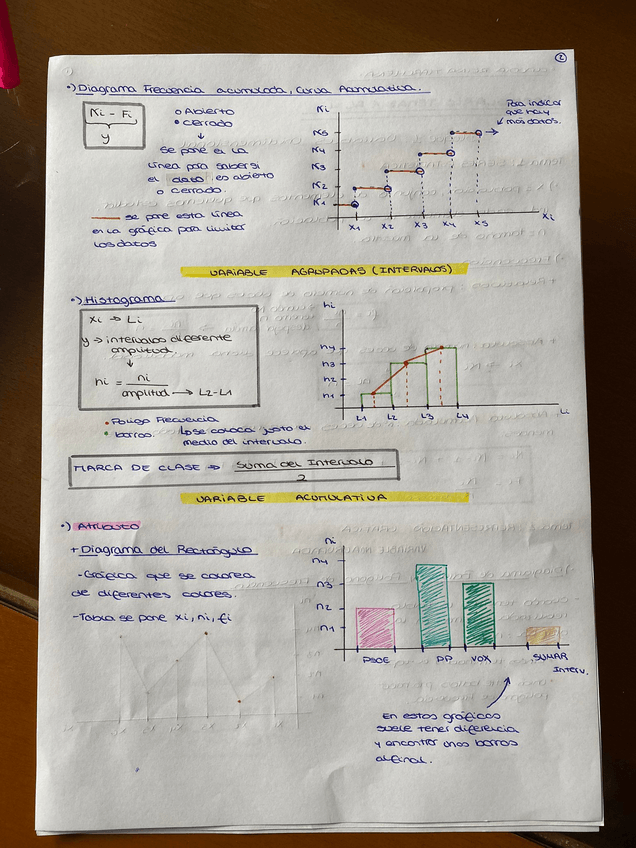 2
•) Diagrama Frecuencia acumulada, Curva Acumulativa.
Ni – Fi
y
o Abierto
• Cerrado
↓
se pone en la
línea para saber si
el dato es abierto
o cerrado.
— se pone esta línea
en la gráfica para limitar
los datos
Ni
N5
N4
N3
N2
N1
x1 x2 x3 x4 x5
xi
Para indicar
que hay
más datos.
VARIABLE AGRUPADAS (INTERVALOS)
•) Histograma
xi → Li
y → intervalos diferente
amplitud
↓
hi = ni
amplitud → L2-L1
• Poligo Frecuencia
• barras. ↳ se coloca justo el
medio del intervalo.
hi
n4
n3
n2
n1
L1 L2 L3 L4
Li
MARCA DE CLASE → Suma del Intervalo
2
VARIABLE ACUMULATIVA
•) Atributo
+ Diagrama del Rectángulo
- Gráfica que se colorea
de diferentes colores.
- Tabla se pone xi, ni, fi
ni
n4
n3
n2
n1
PSOE PP VOX SUMAR
Interv.
En estos gráficos
suele tener diferencia
y encontrar unos barros
al final.